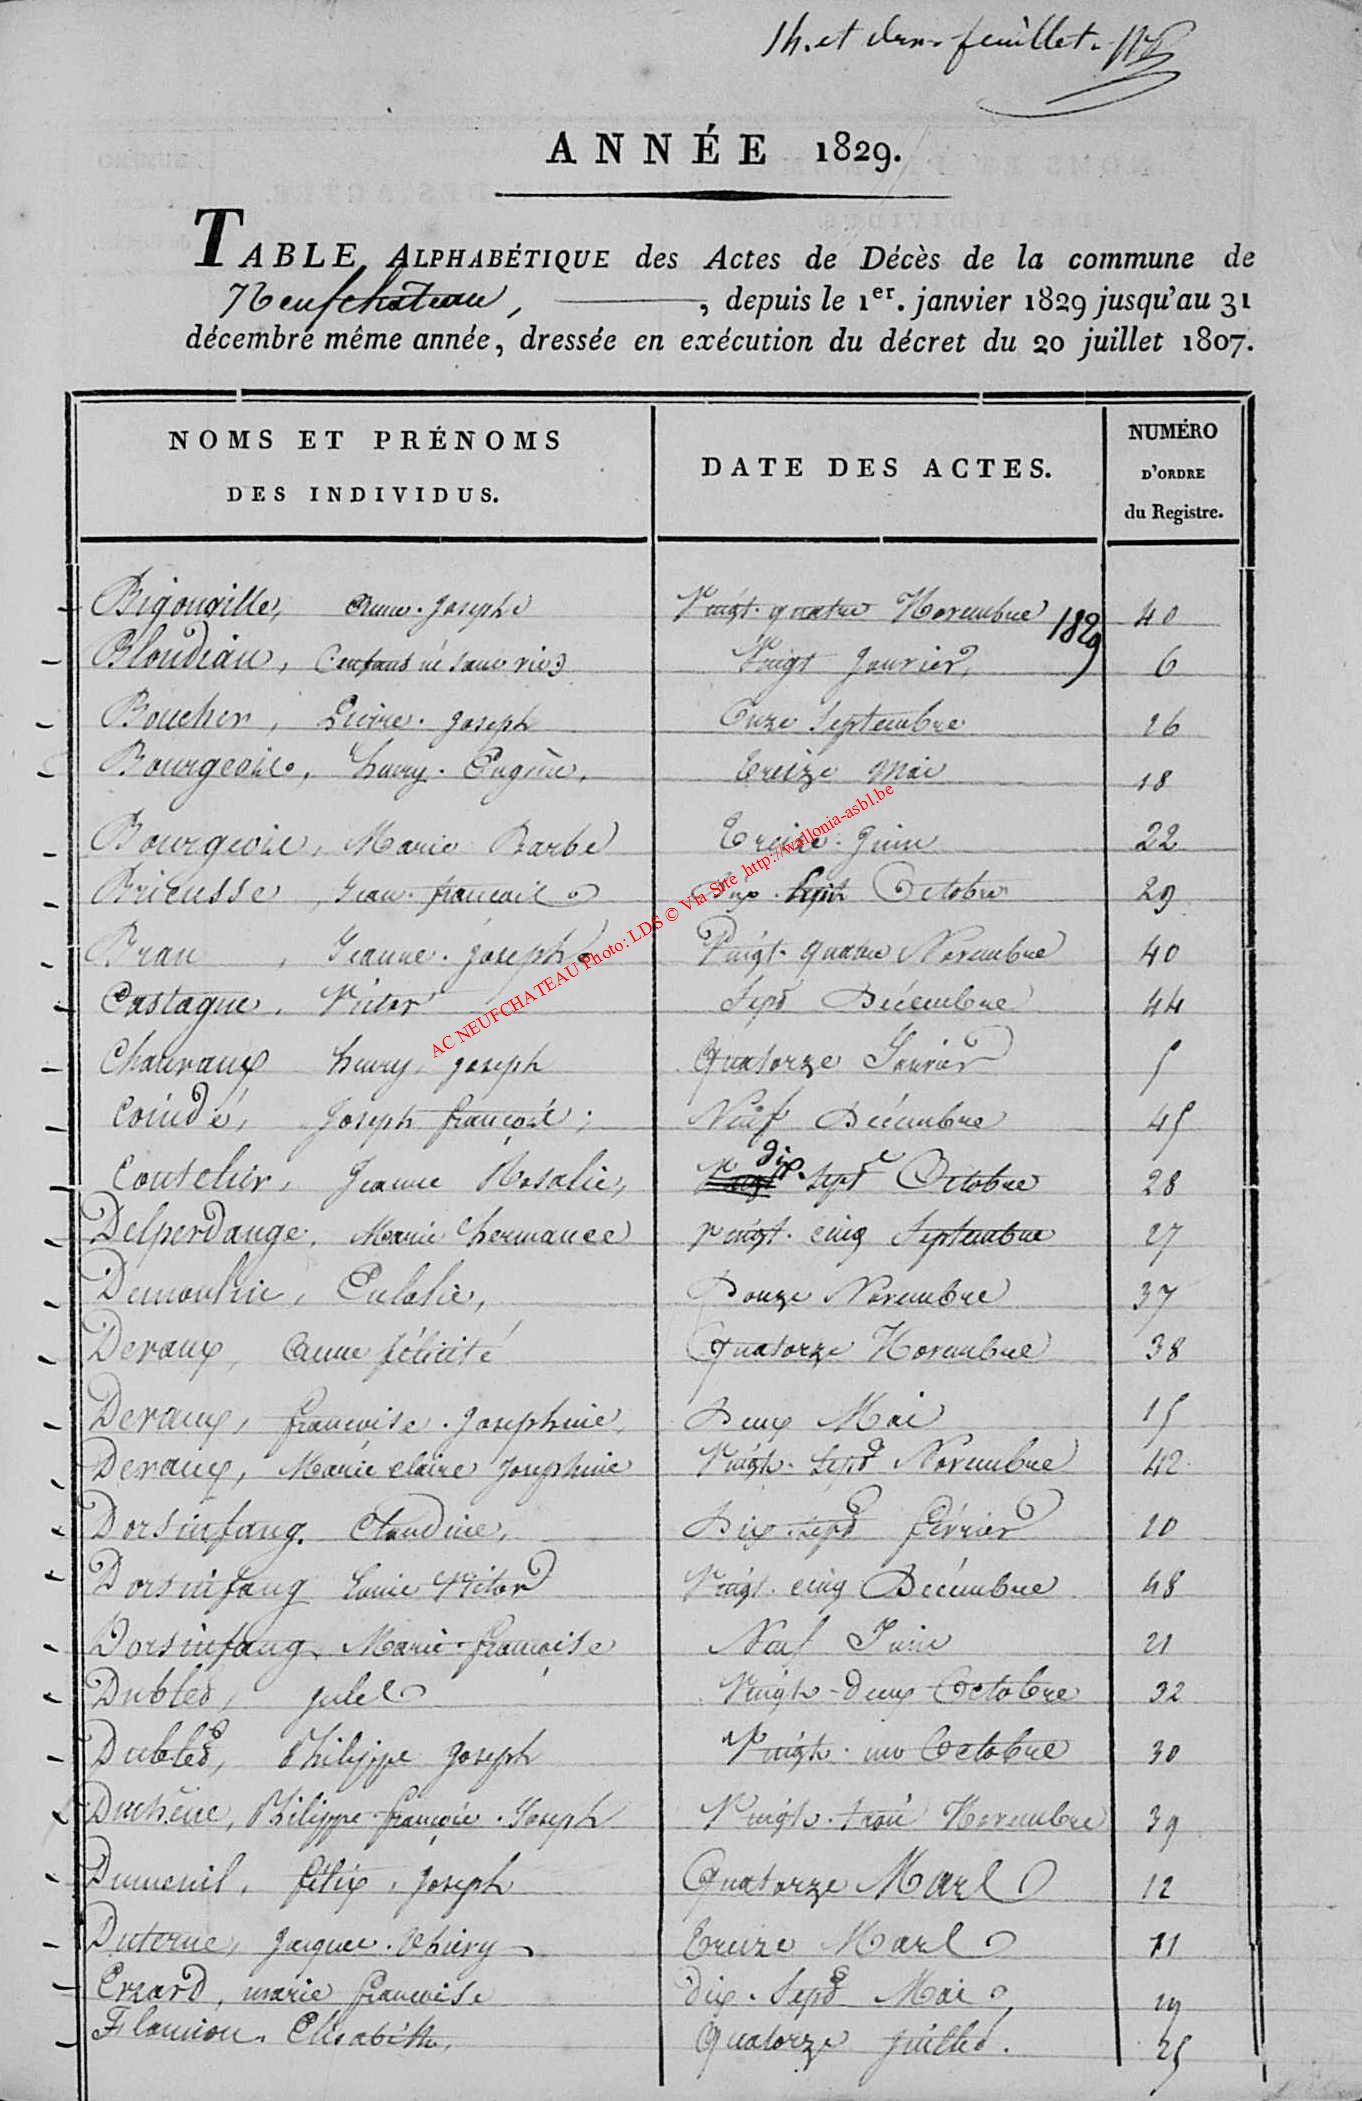 14. et der. feuillet.
ANNÉE 1829.
TABLE ALPHABÉTIQUE des Actes de Décès de la commune de
Neufchateau, , depuis le 1er. janvier 1829 jusqu'au 31
décembre même année, dressée en exécution du décret du 20 juillet 1807.
NOMS ET PRÉNOMS
DES INDIVIDUS.
DATE DES ACTES.
NUMÉRO
D'ORDRE
du Registre.
Bigonville, Anne. Josephe Vingt. quatre Novembre 1829 40
Bloudiau, (enfant né sans vie) Vingt Janvier, 6
Boucher, Pierre. Joseph Onze Septembre 26
Bourgeois, henry. Eugène, Treize Mai 18
Bourgeois, Marie Barbe Treize Juin 22
Bricusse, Jean. françois Dix. huit Octobre 29
Brau, Jeanne. Joseph Vingt. quatre Novembre 40
Castagne, Victor Sept Décembre 44
Chauvaux henry, Joseph Quatorze Janvier 5
Coindé, Joseph françois; Neuf Décembre 45
Coutelier, Jeanne Rosalie, Vingt dix. sept Octobre 28
Delperdange, Marie hermance vingt. cinq Septembre 27
Demoulin, Eulalie, Douze Novembre 37
Devaux, Anne félicité Quatorze Novembre 38
Devaux, françoise. Josephine, Deux Mai 15
Devaux, Marie claire Josephine Vingt. sept Novembre 42
Dorsinfang. Claudine, Dix. sept février 10
Dorsinfang Louis Victor Vingt. cinq Décembre 48
Dorsinfang, Marie. françoise Neuf Juin 21
Dubled, Jules Vingt-deux Octobre 32
Dubled, Philippe Joseph Vingt. un Octobre 30
Duchêne, Philippe françois. Joseph Vingt. trois Novembre 39
Dumenil, félix, Joseph Quatorze Mars 12
Duterne, Jacques. Thiery Treize Mars 11
Evrard, marie françoise dix. Sept Mai, 19
Flamion, Elisabéth, Quatorze Juillet. 25
AC NEUFCHATEAU Photo: LDS © Via Site http://wallonia-asbl.be